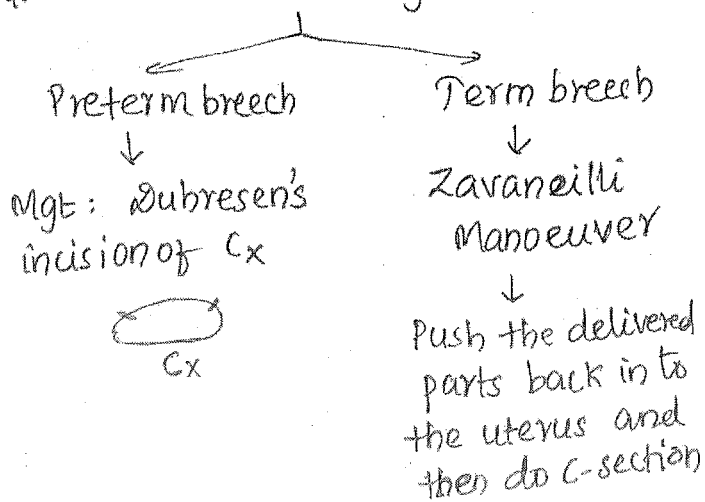 Preterm breech
Term breech
Mgt: Dubresen's
incision of Cx
Cx
Zavaneilli
Manoeuver
Push the delivered
parts back in to
the uterus and
then do C-section